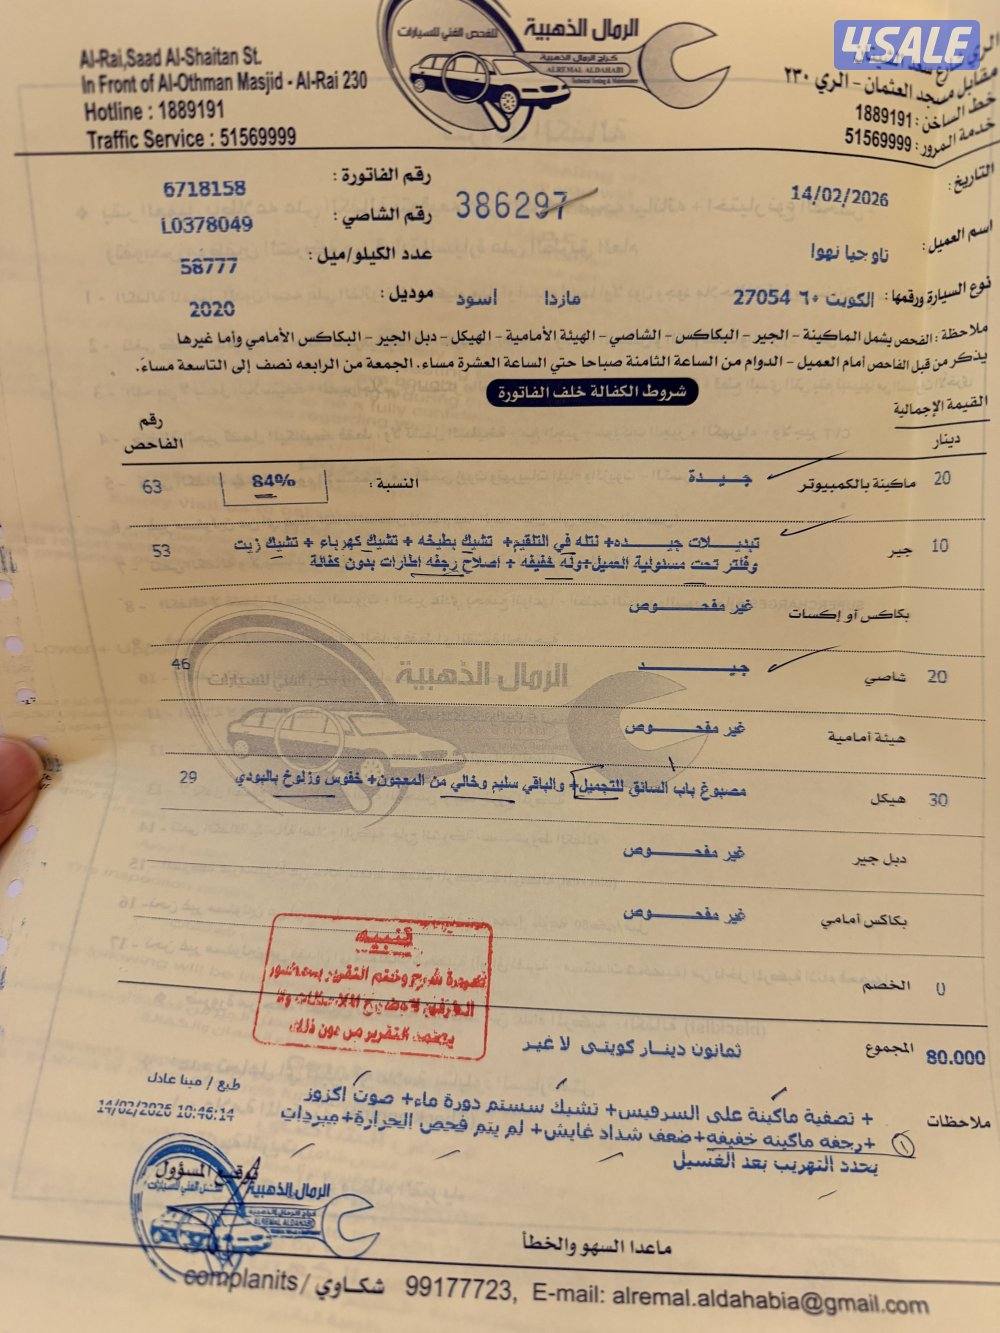 4SALE
Al-Rai,Saad Al-Shaitan St.
In Front of Al-Othman Masjid - Al-Rai 230
Hotline : 1889191
Traffic Service : 51569999
الرمال الذهبية
للفحص الفني للسيارات
كراج الرمال الذهبي
ALREMAL ALDAHABI
Technical Testing & Maintenance
مقابل مسجد العثمان - الري ٢٣٠
خط الساخن : 1889191
خدمة المرور : 51569999
التاريخ: 14/02/2026
رقم الفاتورة : 6718158
386297
رقم الشاصي : L0378049
اسم العميل: ناوجيا نهوا
عدد الكيلو/ميل : 58777
نوع السيارة ورقمها: الكويت ٦٠ 27054 مازدا اسود
موديل : 2020
ملاحظة : الفحص يشمل الماكينة - الجير - البكاكس - الشاصي - الهيئة الأمامية - الهيكل - دبل الجير - البكاكس الأمامي وأما غيرها
يذكر من قبل الفاحص أمام العميل - الدوام من الساعة الثامنة صباحا حتي الساعة العشرة مساء. الجمعة من الرابعه نصف إلى التاسعة مساءً.
شروط الكفالة خلف الفاتورة
القيمة الإجمالية
دينار
رقم الفاحص
20 ماكينة بالكمبيوتر جيدة النسبة : 84% 63
10 جير تبديلات جيده+ نتله في التلقيم+ تشيك بطيخه + تشيك كهرباء + تشيك زيت 53
وفلتر تحت مسئولية العميل+وله خفيفه + اصلاح رجفه اطارات بدون كفالة
بكاكس أو إكسات غير مفحوص
20 شاصي جيد 46
هيئة أمامية غير مفحوص
30 هيكل مصبوغ باب السائق للتجميل+ والباقي سليم وخالي من المعجون+ خفوس وزلوخ بالبودي 29
دبل جير غير مفحوص
بكاكس أمامي غير مفحوص
0 الخصم
تنبيه
80.000 المجموع ثمانون دينار كويتى لا غير
طبع / مينا عادل
14/02/2026 10:46:14
ملاحظات + تصفية ماكينة على السرفيس+ تشيك سستم دورة ماء+ صوت اكزوز
+رجفه ماكينه خفيفه+ضعف شداد غايش+ لم يتم فحص الحرارة+مبردات
يحدد التهريب بعد الغسيل
توقيع المسؤول
الرمال الذهبية
ALREMAL ALDAHABI
ماعدا السهو والخطأ
complanits / شكاوي 99177723, E-mail: alremal.aldahabia@gmail.com